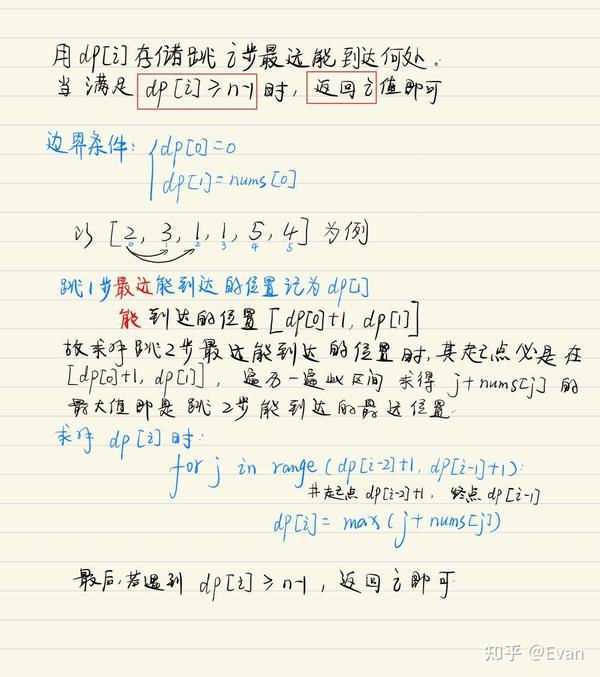 用 dp[i] 存储跳 i 步最远能到达何处。
当满足 dp[i]≥n-1 时, 返回 i 值即可
边界条件: { dp[0]=0
dp[1]=nums[0]
以 [2, 3, 1, 1, 5, 4] 为例
0 1 2 3 4 5
跳1步最远能到达的位置记为dp[1]
能到达的位置 [dp[0]+1, dp[1]]
故求跳2步最远能到达的位置时, 其起点必是在
[dp[0]+1, dp[1]], 遍历一遍此区间 求得 j+nums[j] 的
最大值即是跳2步能到达的最远位置.
求 dp[i] 时:
for j in range(dp[i-2]+1, dp[i-1]+1):
#起点 dp[i-2]+1, 终点 dp[i-1]
dp[i]= max(j+nums[j])
最后, 若遇到 dp[i]≥n-1, 返回 i 即可
知乎 @Evan